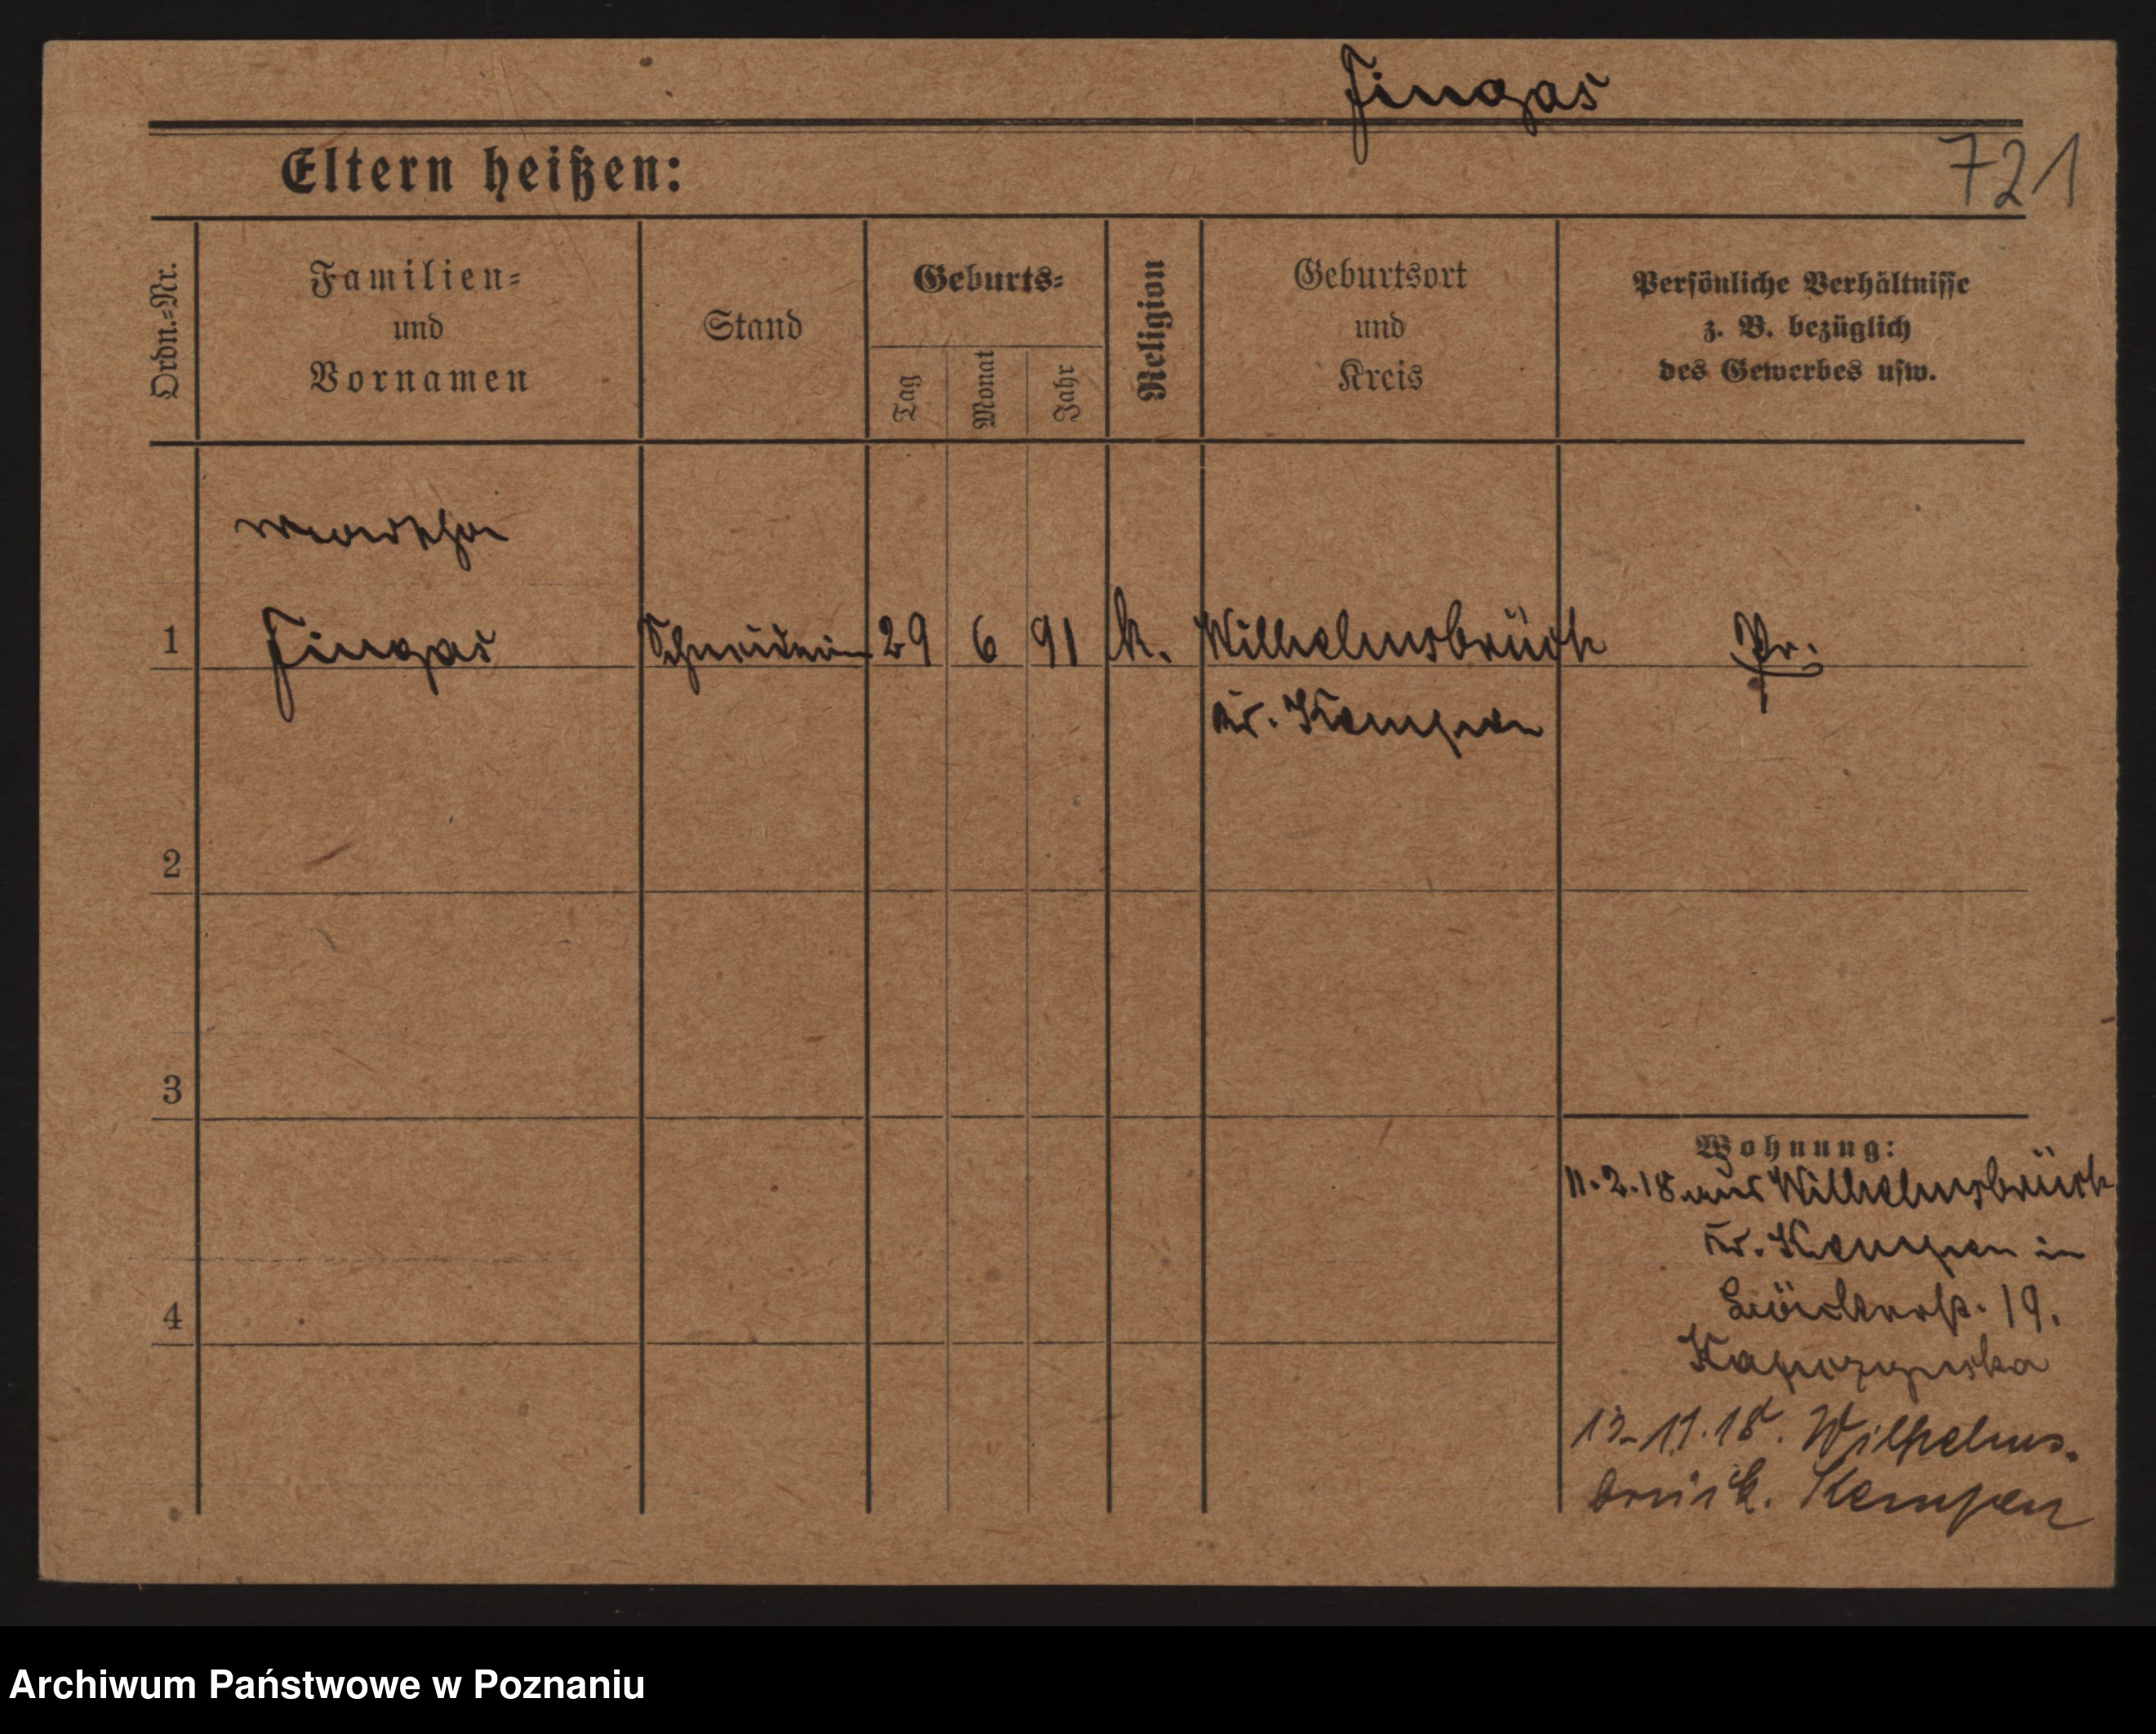 Fingas
721
Eltern heißen:
Ordn.-Nr.
Familien-
und
Vornamen
Stand
Geburts-
Tag
Monat
Jahr
Religion
Geburtsort
und
Kreis
Persönliche Verhältnisse
z. B. bezüglich
des Gewerbes usw.
Martha
1 Fingas Schneiderin 29 6 91 k. Wilhelmsbrück Pr.
Kr. Kempen
2
3
Wohnung:
11.2.18 aus Wilhelmsbrück
Kr. Kempen in
19.
4
13.11.18. Wilhelms-
brück. Kempen
Archiwum Państwowe w Poznaniu